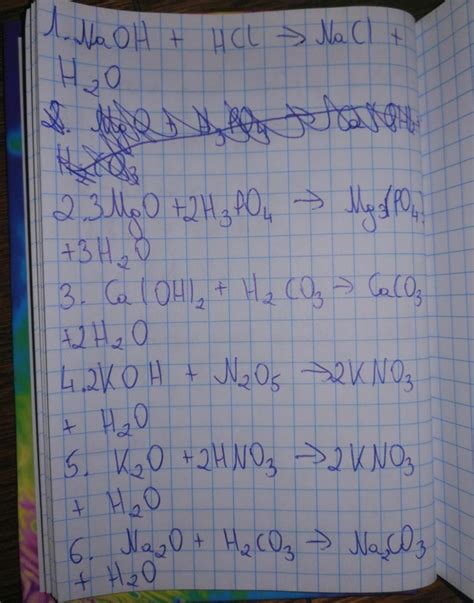 1. NaOH + HCl → NaCl +
H₂O
2. 3MgO + 2H₃PO₄ → Mg₃(PO₄)
+3H₂O
3. Ca(OH)₂ + H₂CO₃ → CaCO₃
+2H₂O
4. 2KOH + N₂O₅ → 2KNO₃
+ H₂O
5. K₂O + 2HNO₃ → 2KNO₃
+ H₂O
6. Na₂O + H₂CO₃ → Na₂CO₃
+ H₂O